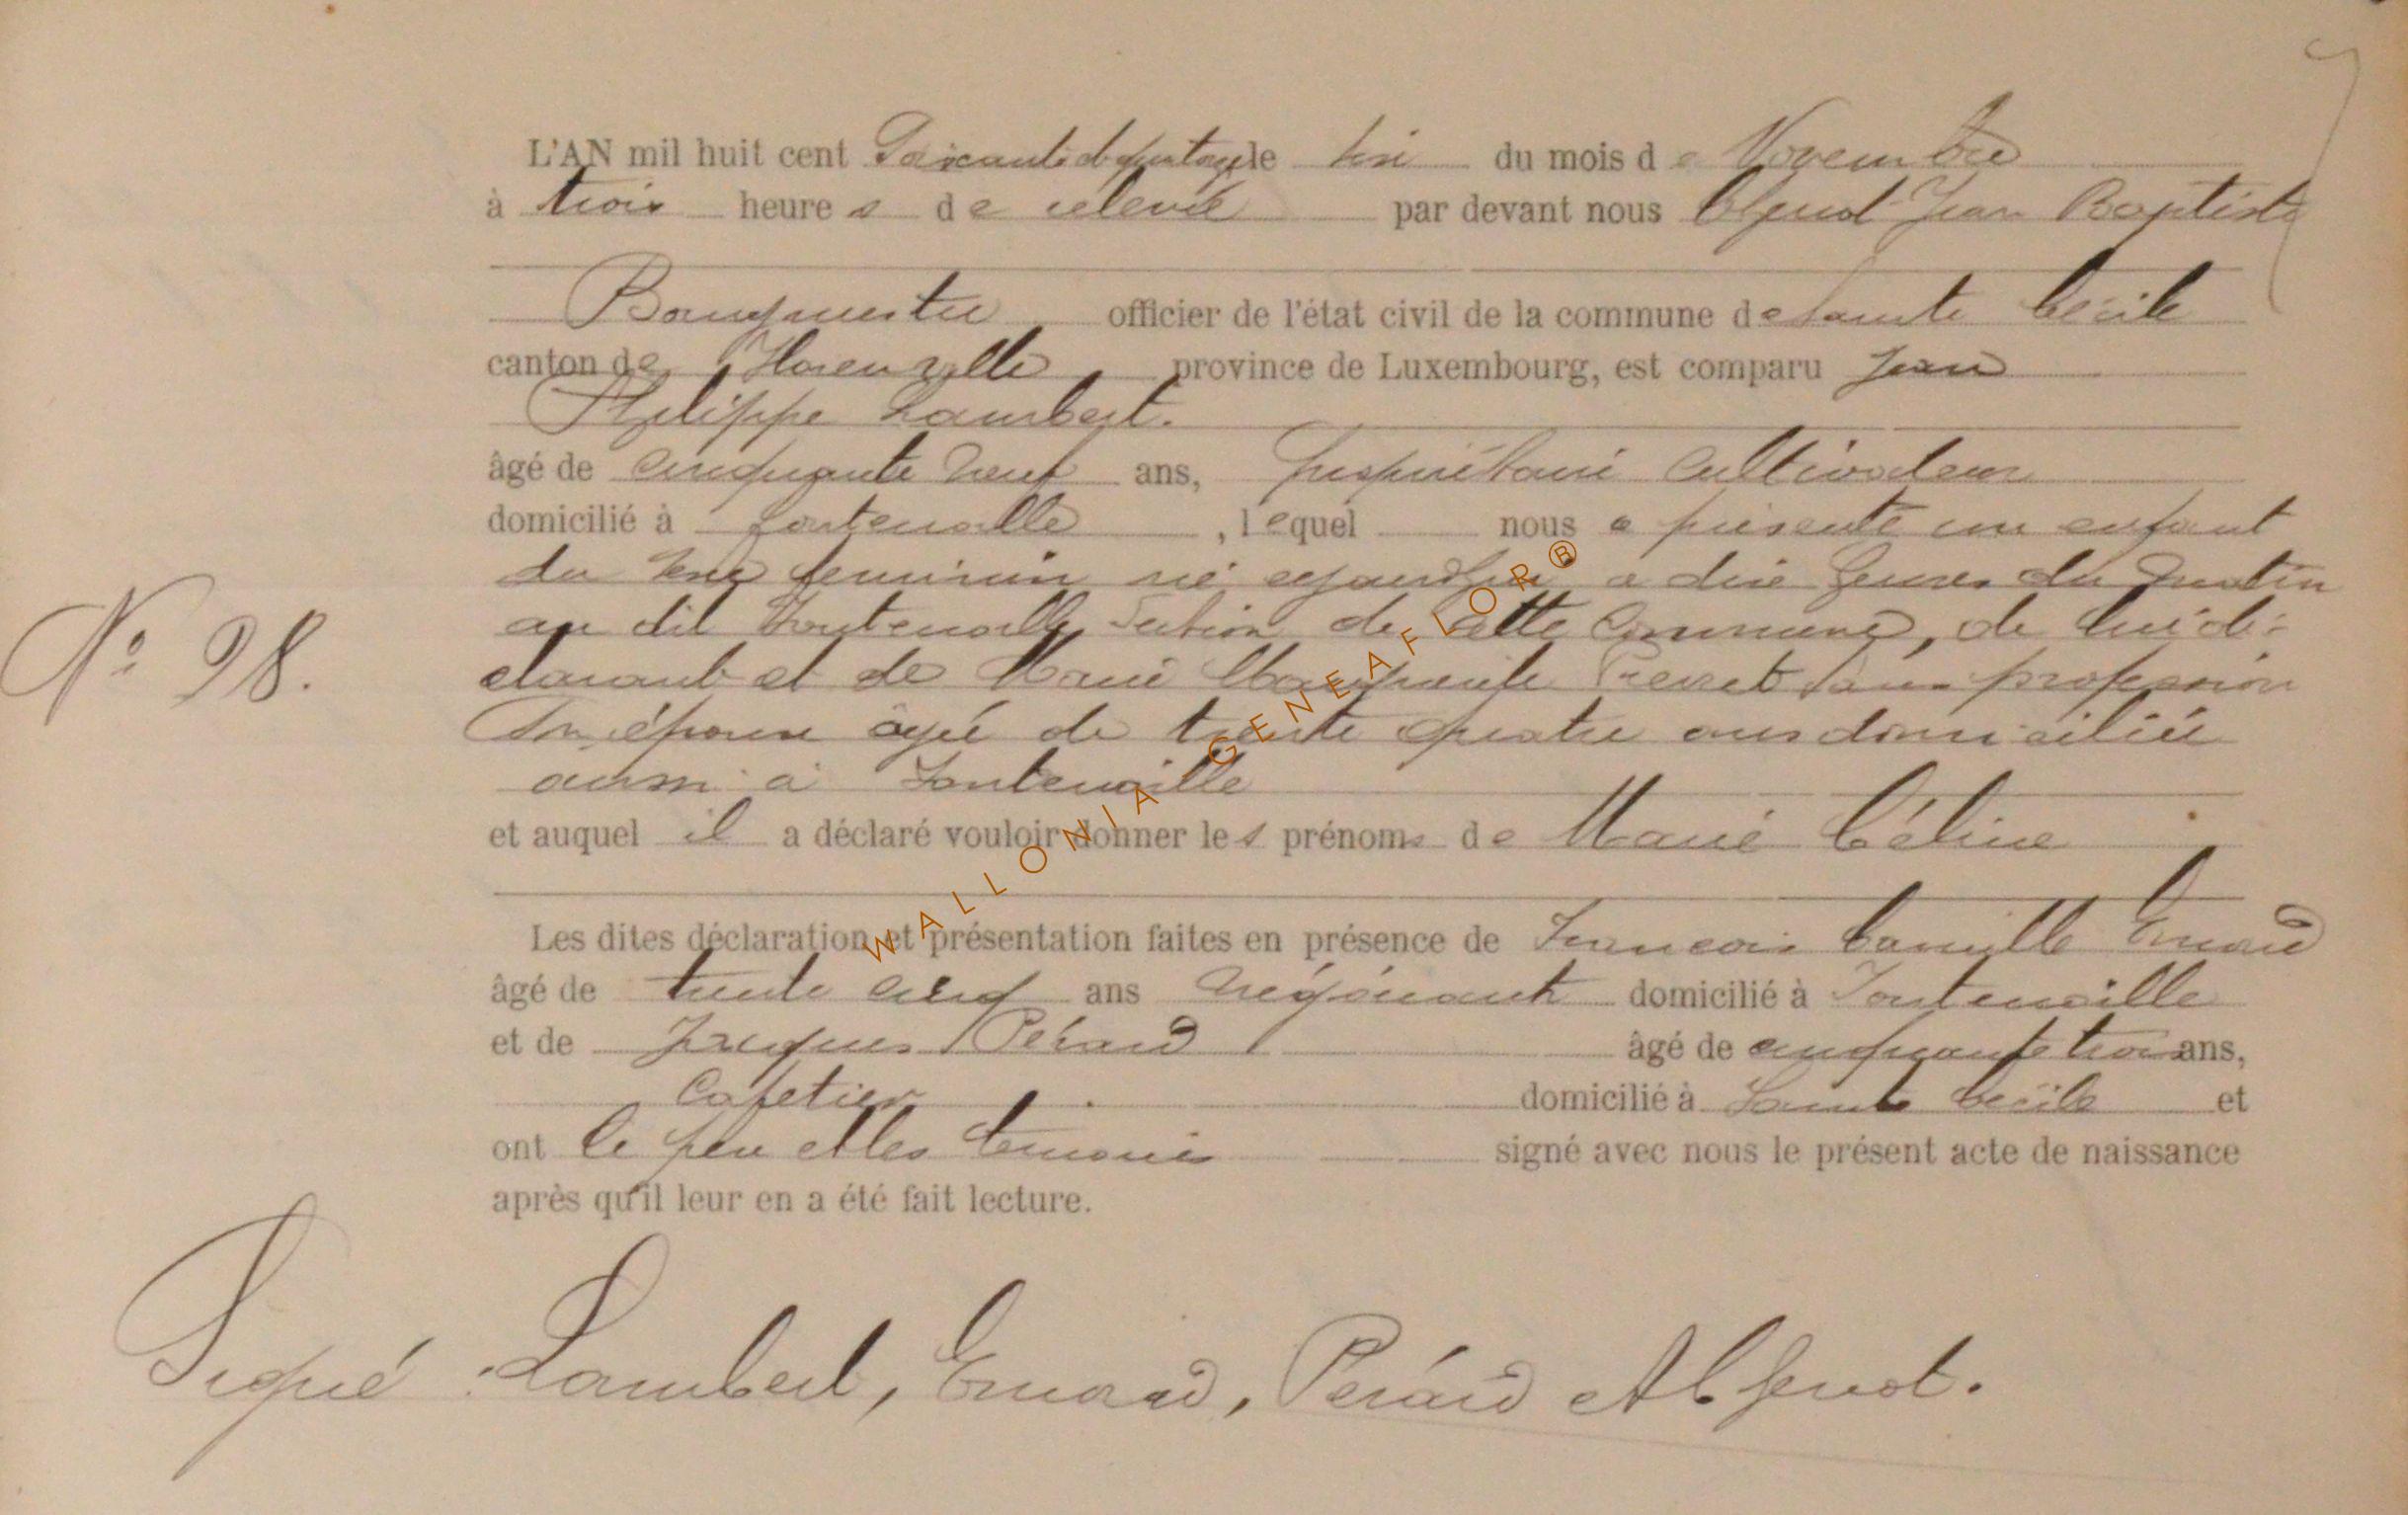 L'AN mil huit cent soixante et quatorze le six du mois de Novembre
à trois heures de relevée par devant nous Jean Baptiste
Bourgmestre officier de l'état civil de la commune de Sainte Cécile
canton de Florenville province de Luxembourg, est comparu Jean
Philippe Lambert.
âgé de cinquante neuf ans, propriétaire cultivateur
domicilié à Fontenoille, lequel nous a présenté un enfant
du sexe feminin né aujourd'hui a dix heures du matin
au dit Fontenoille section de cette commune, de lui dé-
clarant et de Marie Marguerite Pierret sans profession
Son épouse âgée de trente quatre ans domiciliée
aussi à Fontenoille
N° 98.
et auquel il a déclaré vouloir donner les prénoms de Marie Céline
Les dites déclaration et présentation faites en présence de Francois Camille Emond
âgé de trente cinq ans négociant domicilié à Fontenoille
et de Jacques Pérard âgé de cinquante trois ans,
Cafetier domicilié à Sainte Cécile et
ont le père et les témoins signé avec nous le présent acte de naissance
après qu'il leur en a été fait lecture.
Signé : Lambert, Emond, Pérard et
WALLONIA GENEAFLOR®